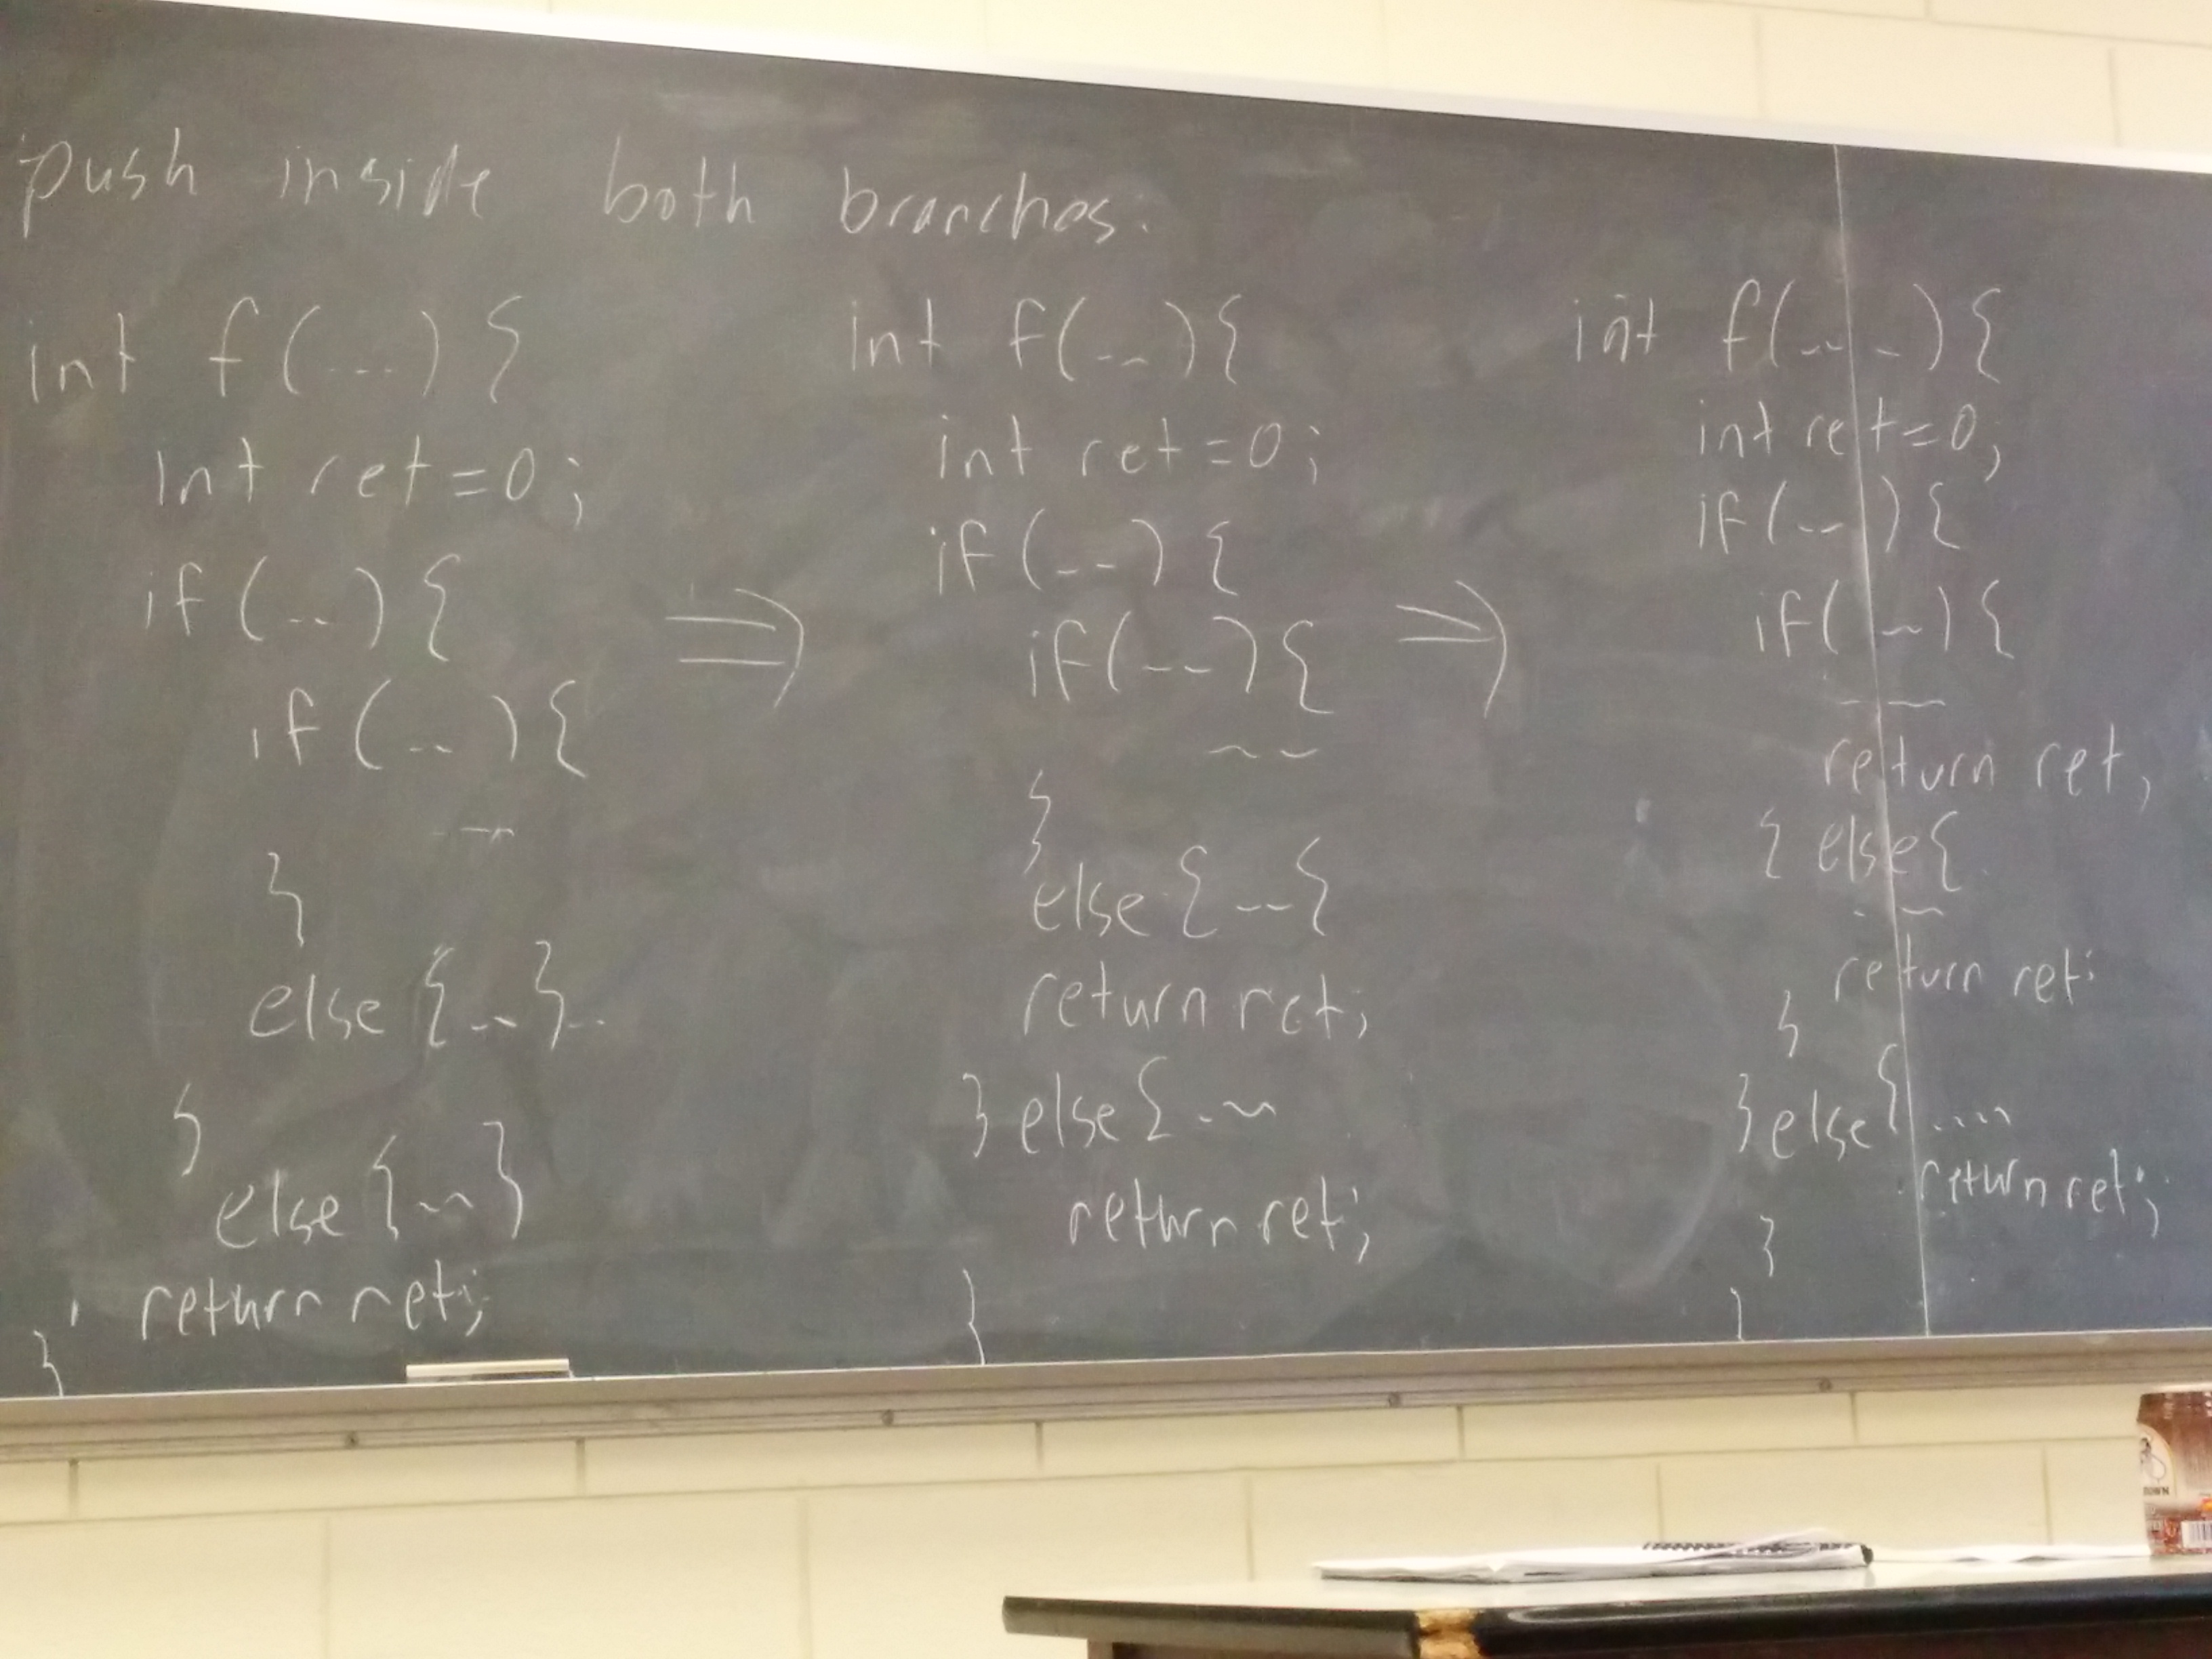 push inside both branches.
int f(...) {
int ret=0;
if(..) {
if(..) {
}
else {..}..
}
else {~~}
return ret;
}
⇒
int f(..) {
int ret=0;
if(--) {
if(--) {
~~
}
else { -- {
return ret;
} else { .~~
return ret;
}
⇒
int f(....) {
int ret=0;
if(--) {
if(~) {
return ret;
{ else {
return ret;
}
} else { ....
return ret;
}
}
OWN